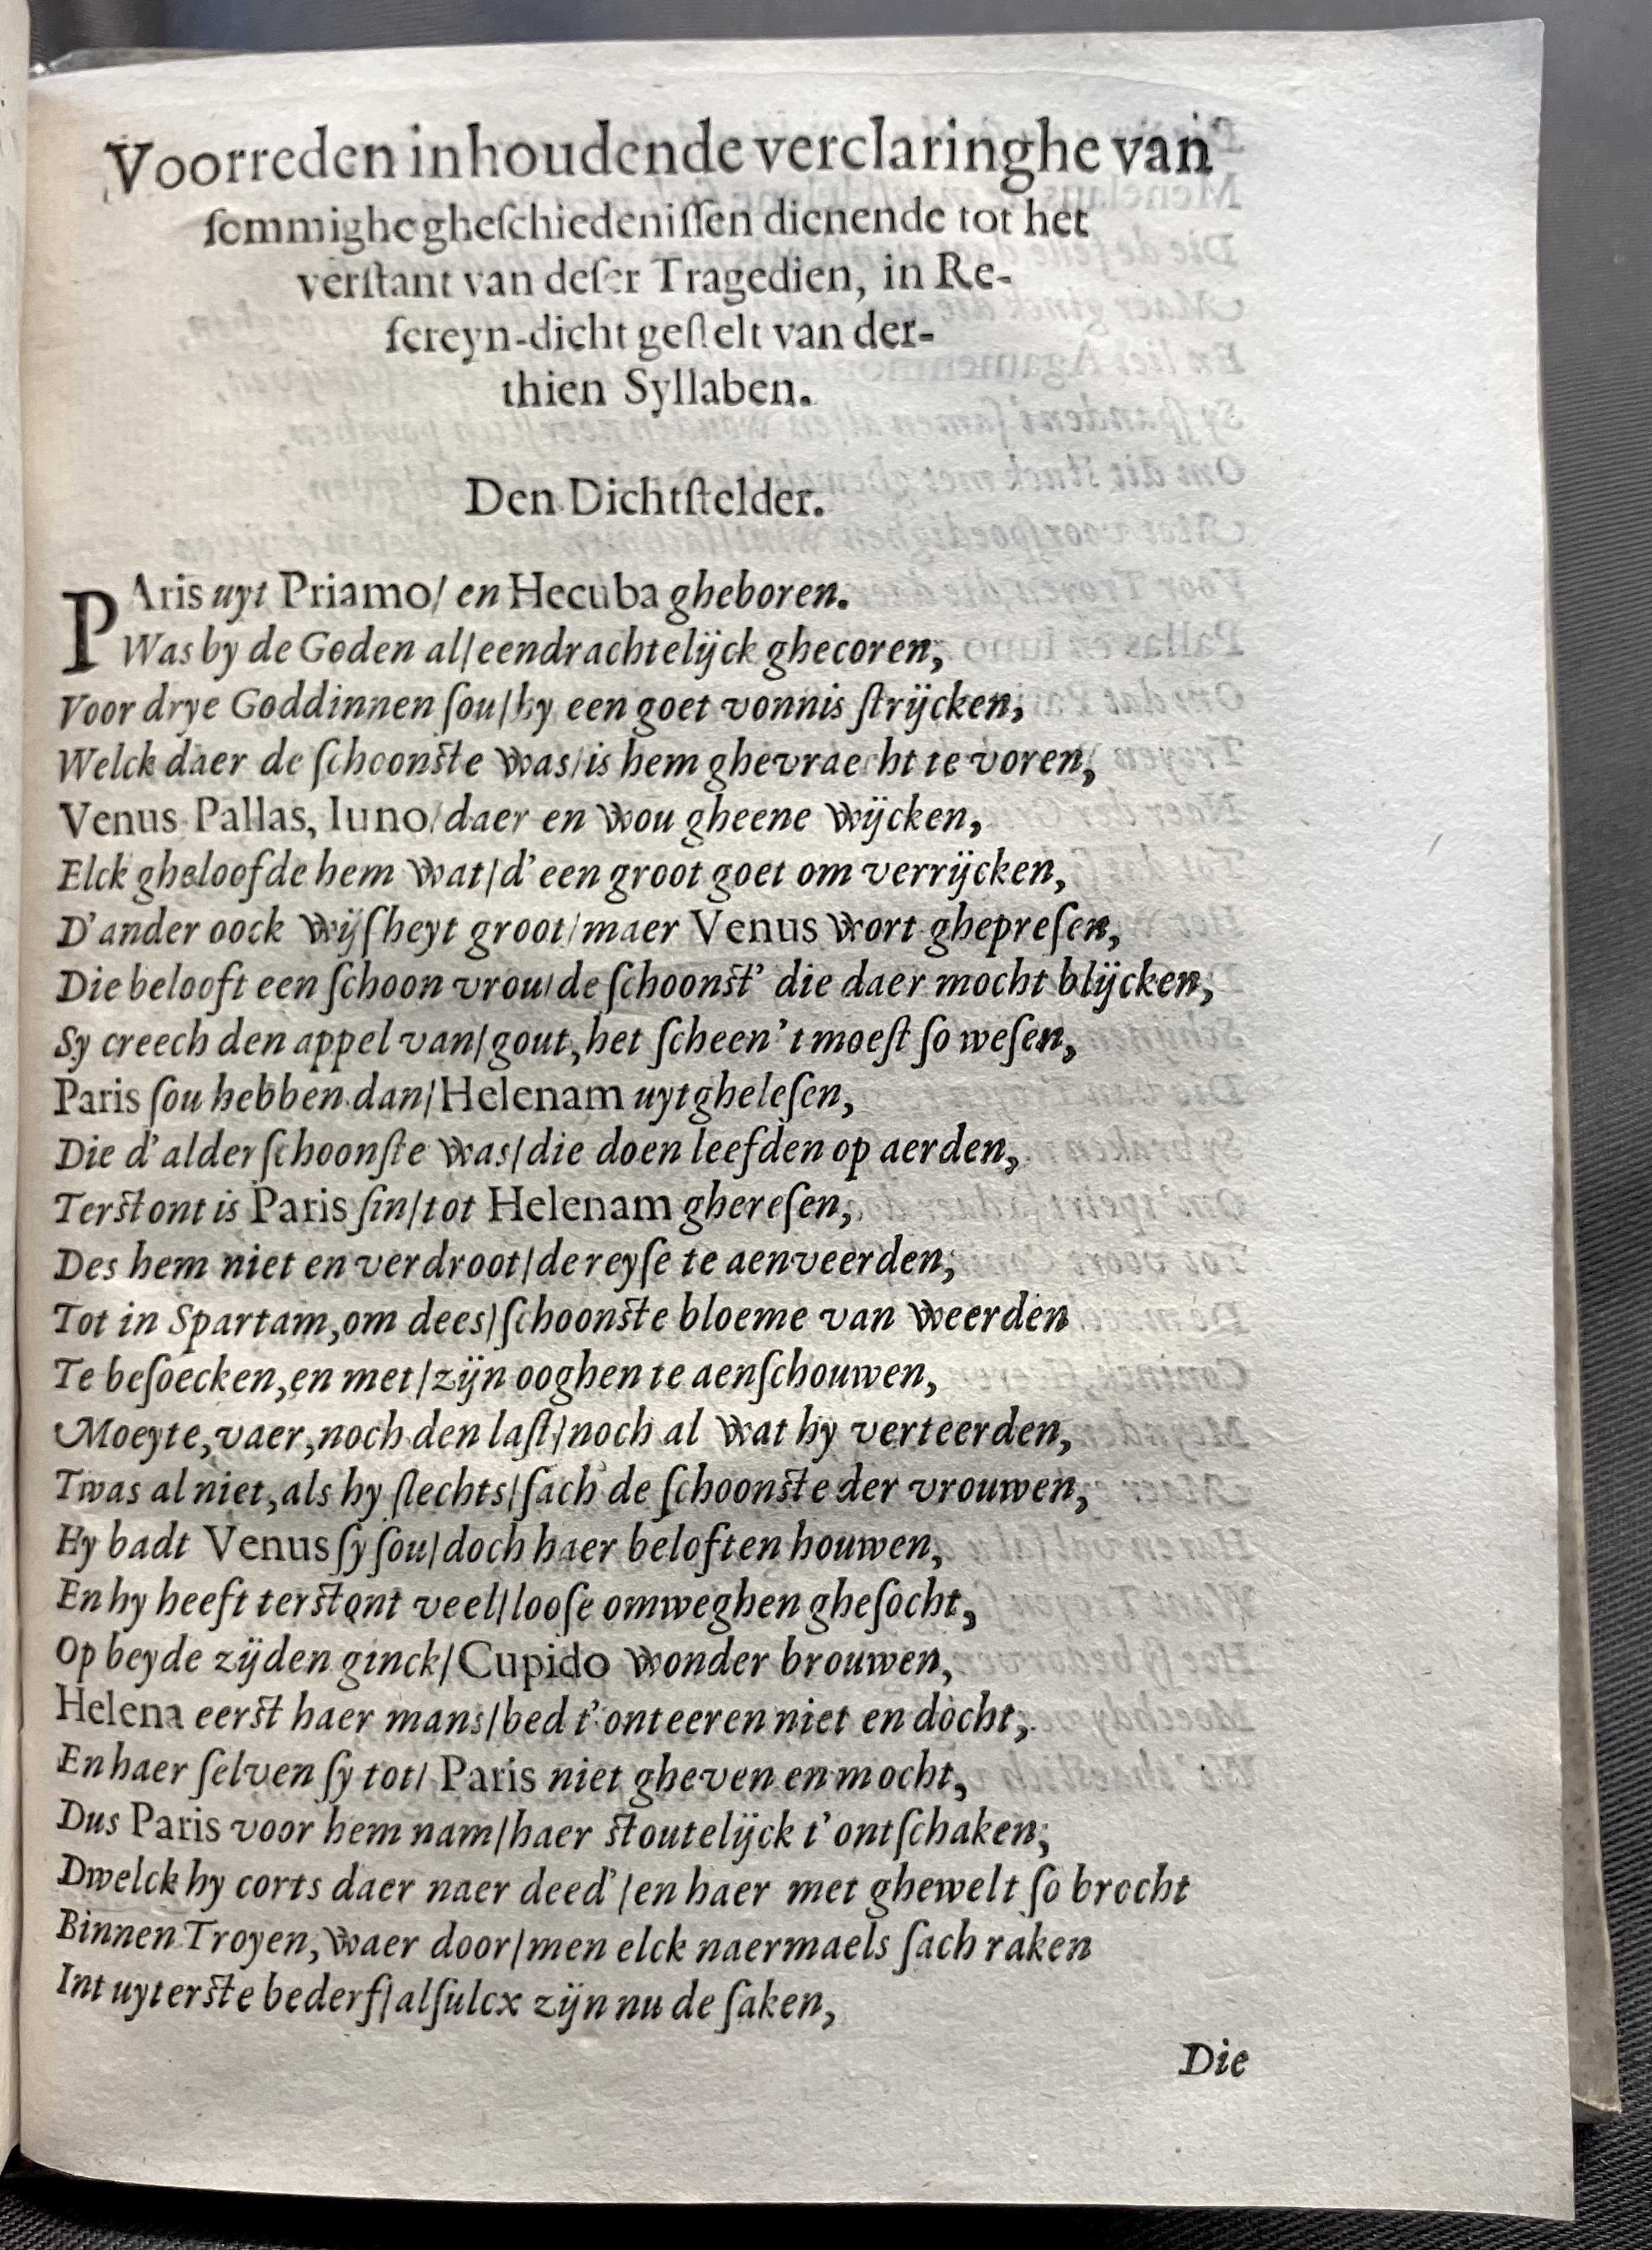 Voorreden inhoudende verclaringhe van
ſommighe gheſchiedeniſſen dienende tot het
verſtant van deſer Tragedien, in Re-
fereyn-dicht geſtelt van der-
thien Syllaben.
Den Dichtſtelder.
PAris uyt Priamo/ en Hecuba gheboren.
Was by de Goden al/eendrachtelijck ghecoren;
Voor drye Goddinnen ſou/hy een goet vonnis ſtrijcken;
Welck daer de ſchoonſte was/is hem ghevraecht te voren,
Venus Pallas, Iuno/daer en wou gheene wijcken,
Elck gheloofde hem wat/d'een groot goet om verrijcken,
D'ander oock wijſheyt groot/maer Venus wort ghepreſen,
Die belooft een ſchoon vrou/de ſchoonſt' die daer mocht blijcken,
Sy creech den appel van/gout, het ſcheen't moeſt ſo weſen,
Paris ſou hebben dan/Helenam uytgheleſen,
Die d'alderſchoonſte was/die doen leefden op aerden,
Terſtont is Paris ſin/tot Helenam ghereſen,
Des hem niet en verdroot/de reyſe te aenveerden;
Tot in Spartam, om dees/ſchoonſte bloeme van weerden
Te beſoecken, en met/zijn ooghen te aenſchouwen,
Moeyte, vaer, noch den laſt/noch al wat hy verteerden,
Twas al niet, als hy ſlechts/ſach de ſchoonſte der vrouwen,
Hy badt Venus ſy ſou/doch haer beloften houwen,
En hy heeft terſtont veel/looſe omweghen gheſocht,
Op beyde zijden ginck/Cupido wonder brouwen,
Helena eerſt haer mans/bed t'onteeren niet en docht,
En haer ſelven ſy tot/ Paris niet gheven en mocht,
Dus Paris voor hem nam/haer ſtoutelijck t'ontſchaken;
Dwelck hy corts daer naer deed'/en haer met ghewelt ſo brocht
Binnen Troyen, waer door/men elck naermaels ſach raken
Int uyterſte bederf/alſulcx zijn nu de ſaken,
Die